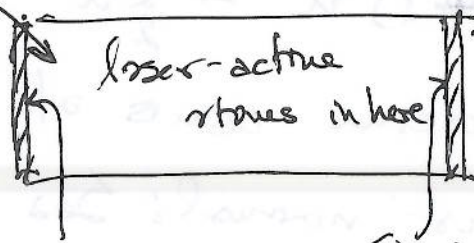 laser-active
atoms in here